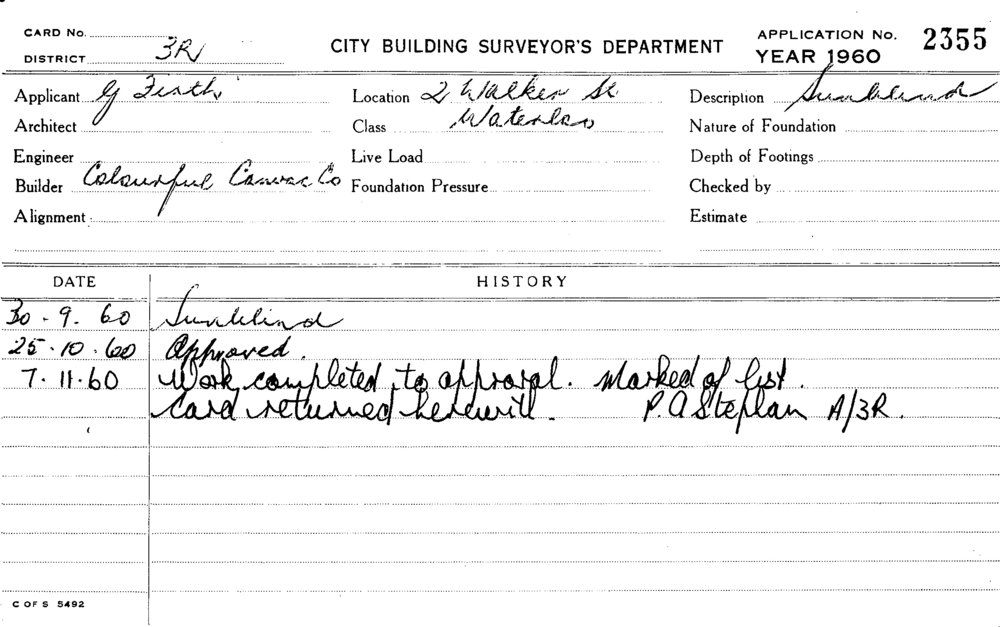 CARD No.
DISTRICT 3R
CITY BUILDING SURVEYOR'S DEPARTMENT
APPLICATION No. 2355
YEAR 1960
Applicant G Firth Location 2 Walker St Description Sunblind
Architect Class Waterloo Nature of Foundation
Engineer Live Load Depth of Footings
Builder Colourful Canvas Co Foundation Pressure Checked by
Alignment Estimate
DATE HISTORY
30-9.60 Sunblind
25.10.60 Approved.
7.11.60 Work completed to approval. Marked of list.
Card returned herewith. P.A Stephan A/3R.
C OF S 5492